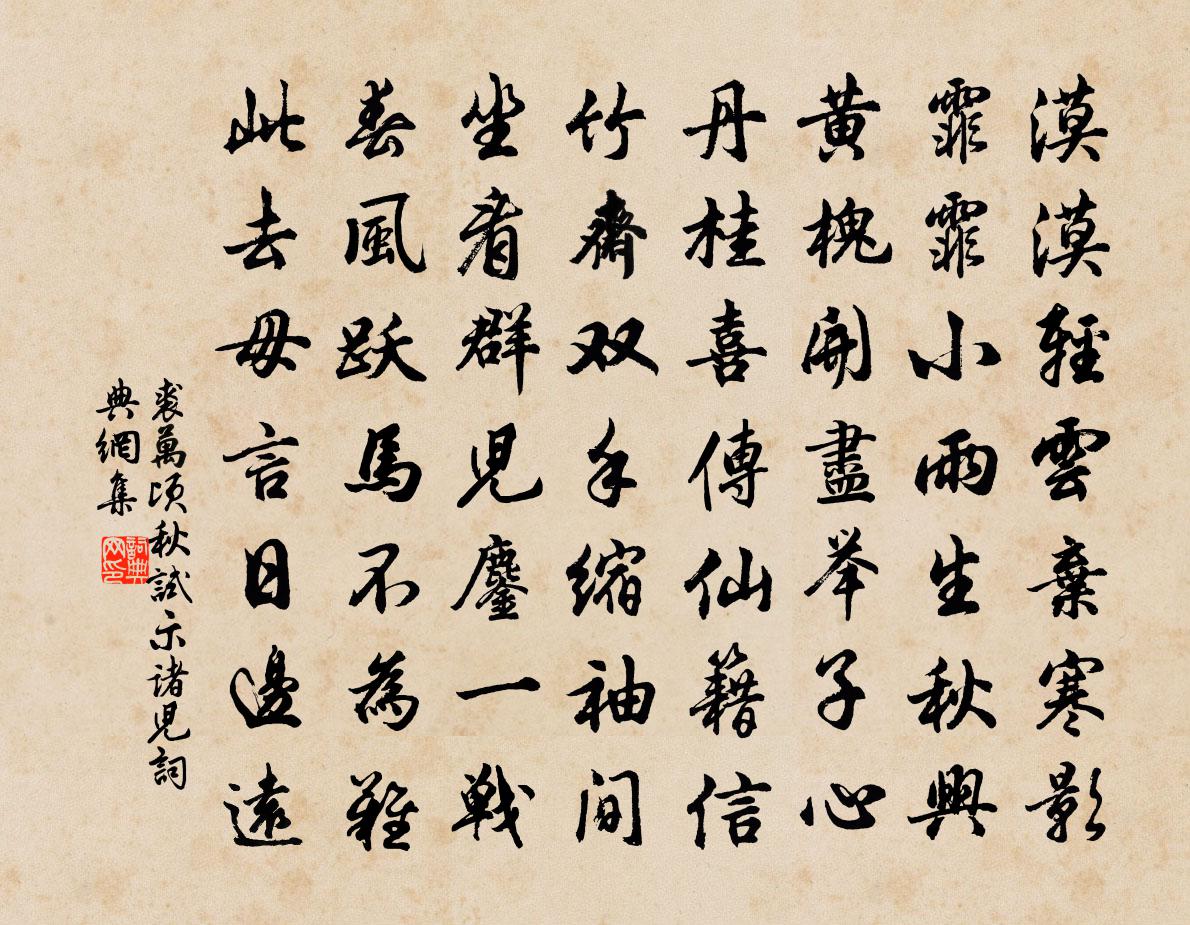 漠漠輕雲棄寒影
霏霏小雨生秋興
黄槐開盡举子心
丹桂喜傳仙籍信
竹齋双手縮袖间
坐看群児鏖一戦
春風跃馬不為難
此去毋言日邊遠
裘萬頃秋試示諸児詞
典網集
詞典網印